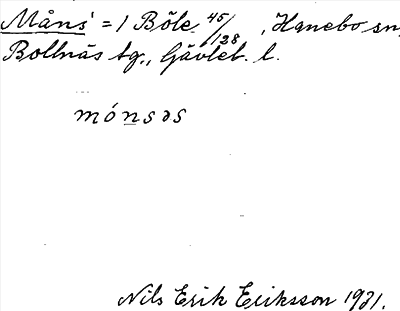 Måns' = 1 Böle 45/128, Hanebo sn,
Bollnäs tg., Gävleb. l.
mónsəs
Nils Erik Eriksson 1931.